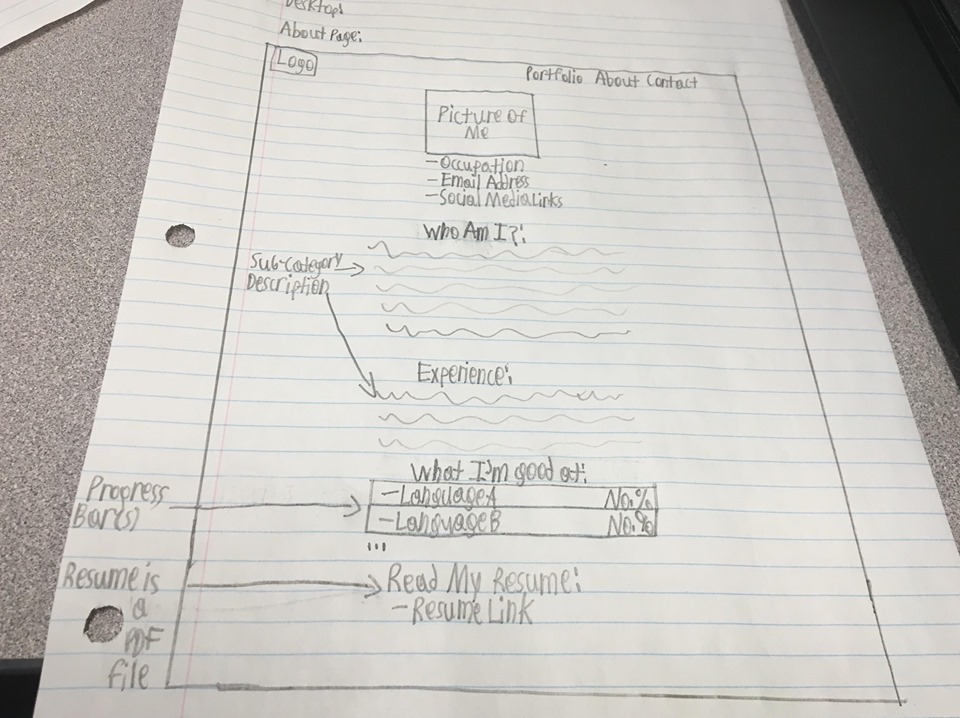 Desktop:
About Page:
Logo
Portfolio About Contact
Picture of
Me
- Occupation
- Email Address
- Social Media Links
Who Am I?:
Sub-Category
Description
Experience:
What I'm good at:
- Language A No.%
- Language B No.%
...
Progress
Bar(s)
Resume is
a
PDF
file
Read My Resume:
- Resume Link